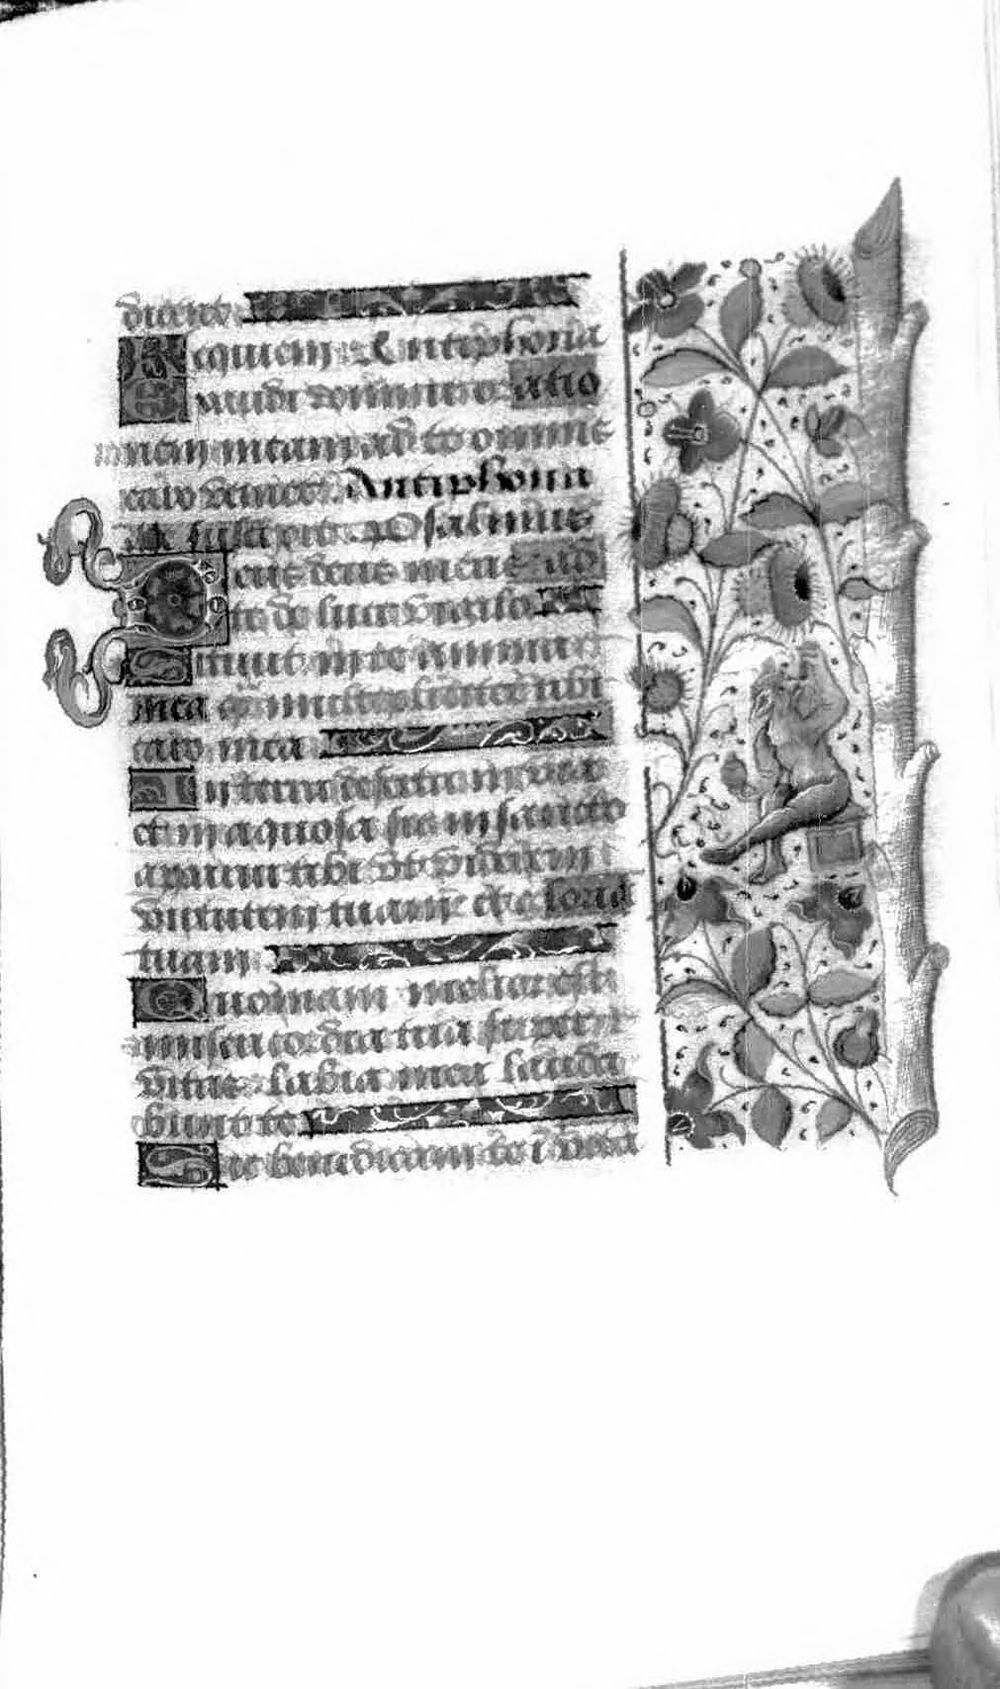 dicent
Requiem Antiphona
Exaudi domine oratio
nem meam ad te omnis
caro veniet. Antiphona
Me suscepit. Psalmus
Deus deus meus ad
te de luce vigilo
Sitiuit in te anima
mea q̃ multipliciter tibi
caro mea
In terra deserta inuia
et inaquosa sic in sancto
apparui tibi vt viderem
virtutem tuam et gloria
tuam
Quoniam melior est
misericordia tua super
vitas labia mea lauda
bunt te
Sic benedicam te ĩ vita